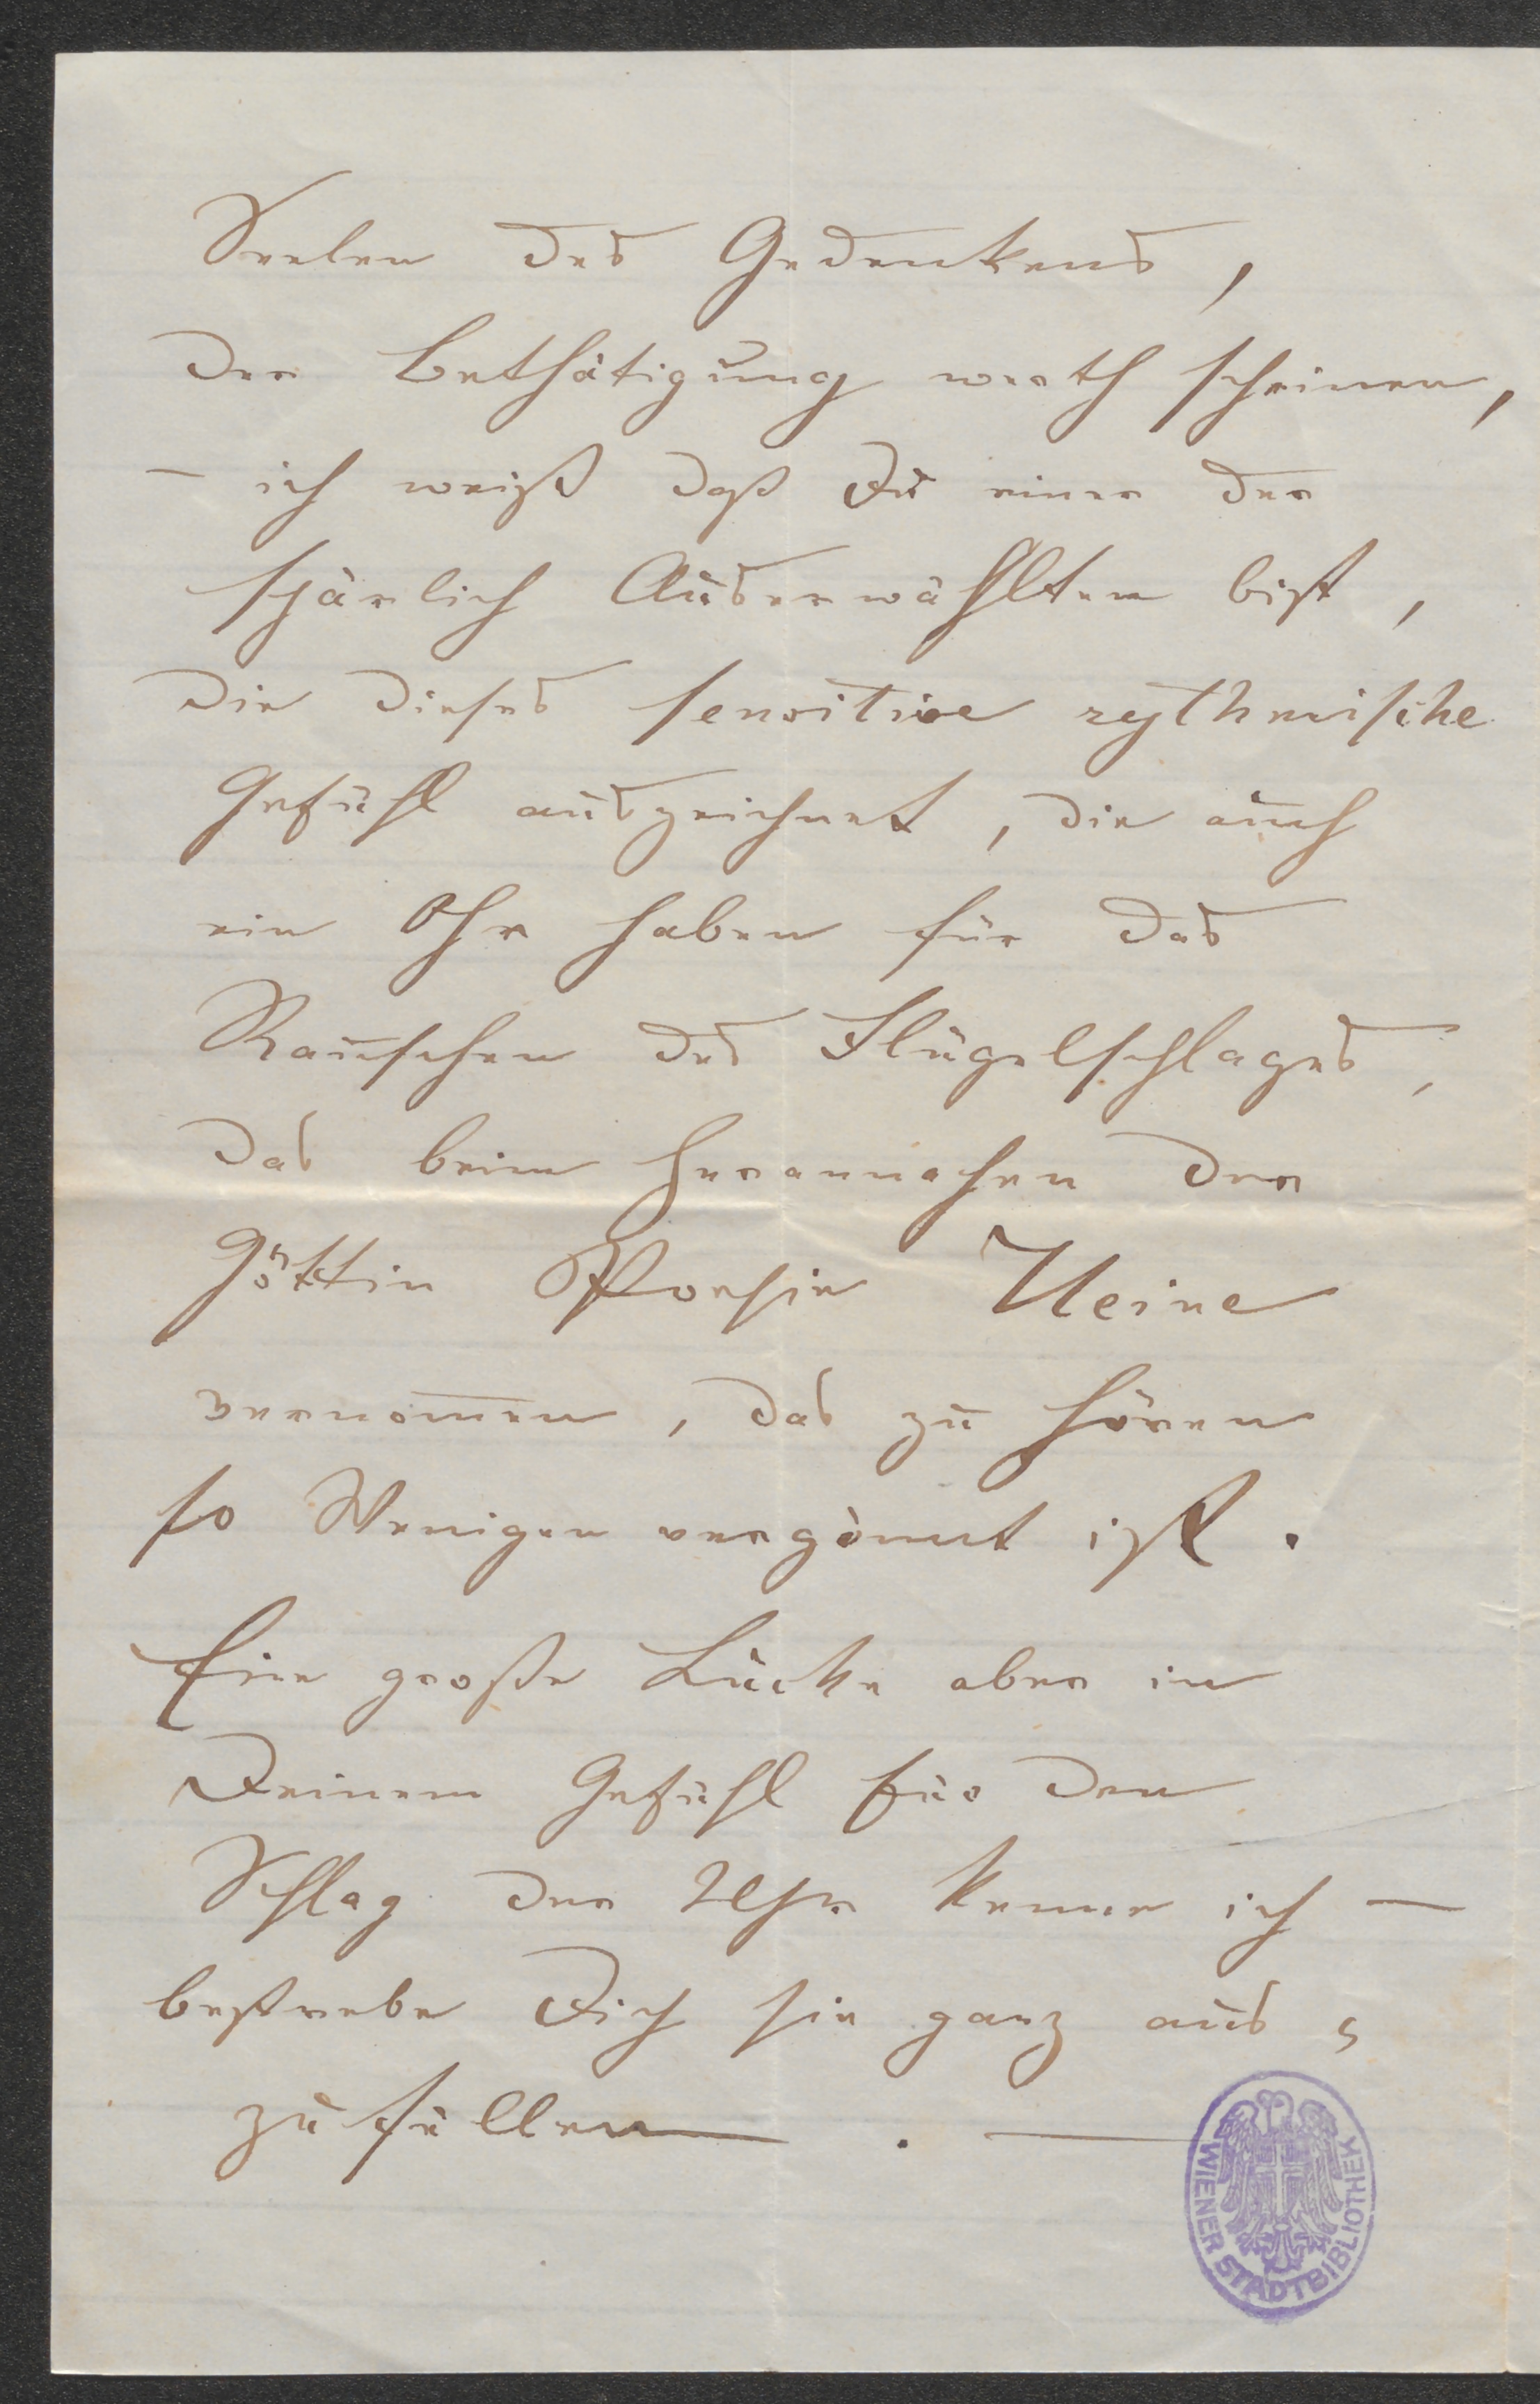 Seelen des Gedenkens,
der Bethätigung werth scheinen,
– ich weiß daß Du einer der
spärlich Auserwählten bist,
die dieses sensitive rythmische
Gefühl auszeichnet, die auch
ein Ohr haben für das
Rauschen des Flügelschlages,
das beim Herannahen der
Göttin Poesie Heine
vernom̅en, das zu hören
so Wenigen vergönnt ist.
Eine große Lücke aber in
Deinem Gefühl für den
Schlag der Uhr kenne ich —
bestrebe Dich sie ganz aus
zufüllen. —
WIENER STADTBIBLIOTHEK